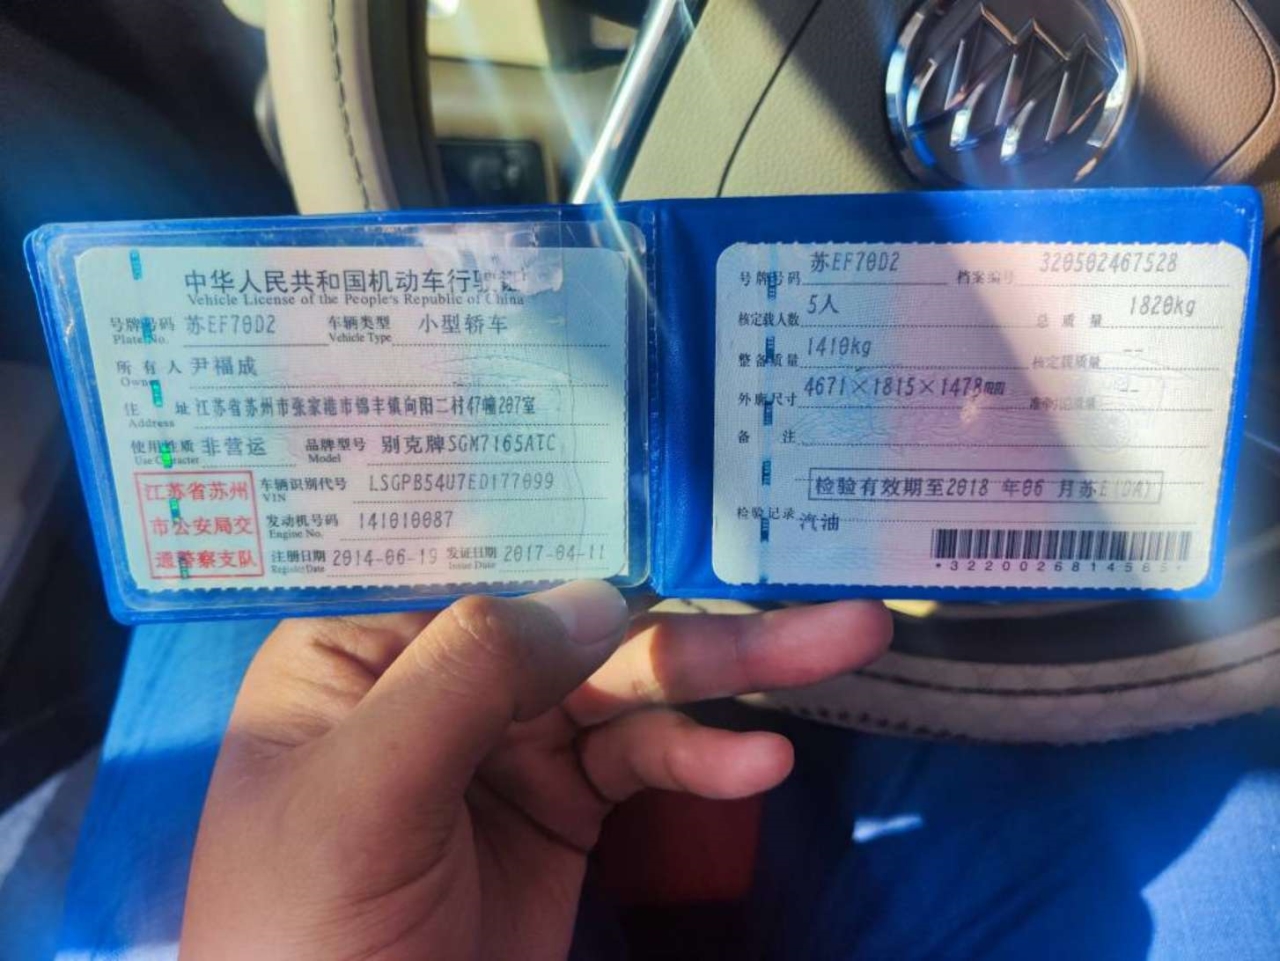 中华人民共和国机动车行驶证
Vehicle License of the People's Republic of China
号牌号码 苏EF70D2 车辆类型 小型轿车
Plate No. Vehicle Type
所有人 尹福成
Owner
住址 江苏省苏州市张家港市锦丰镇向阳二村47幢207室
Address
使用性质 非营运 品牌型号 别克牌SGM7165ATC
Use Character Model
江苏省苏州
市公安局交
通警察支队
车辆识别代号 LSGPB54U7ED177099
VIN
发动机号码 141010087
Engine No.
注册日期 2014-06-19 发证日期 2017-04-11
Register Date Issue Date
号牌号码 苏EF70D2 档案编号 320502467528
核定载人数 5人 总质量 1820kg
整备质量 1410kg 核定载质量 --
外廓尺寸 4671×1815×1478mm --
备注
检验有效期至2018年06月苏E(DA)
检验记录 汽油
*3220026814565*